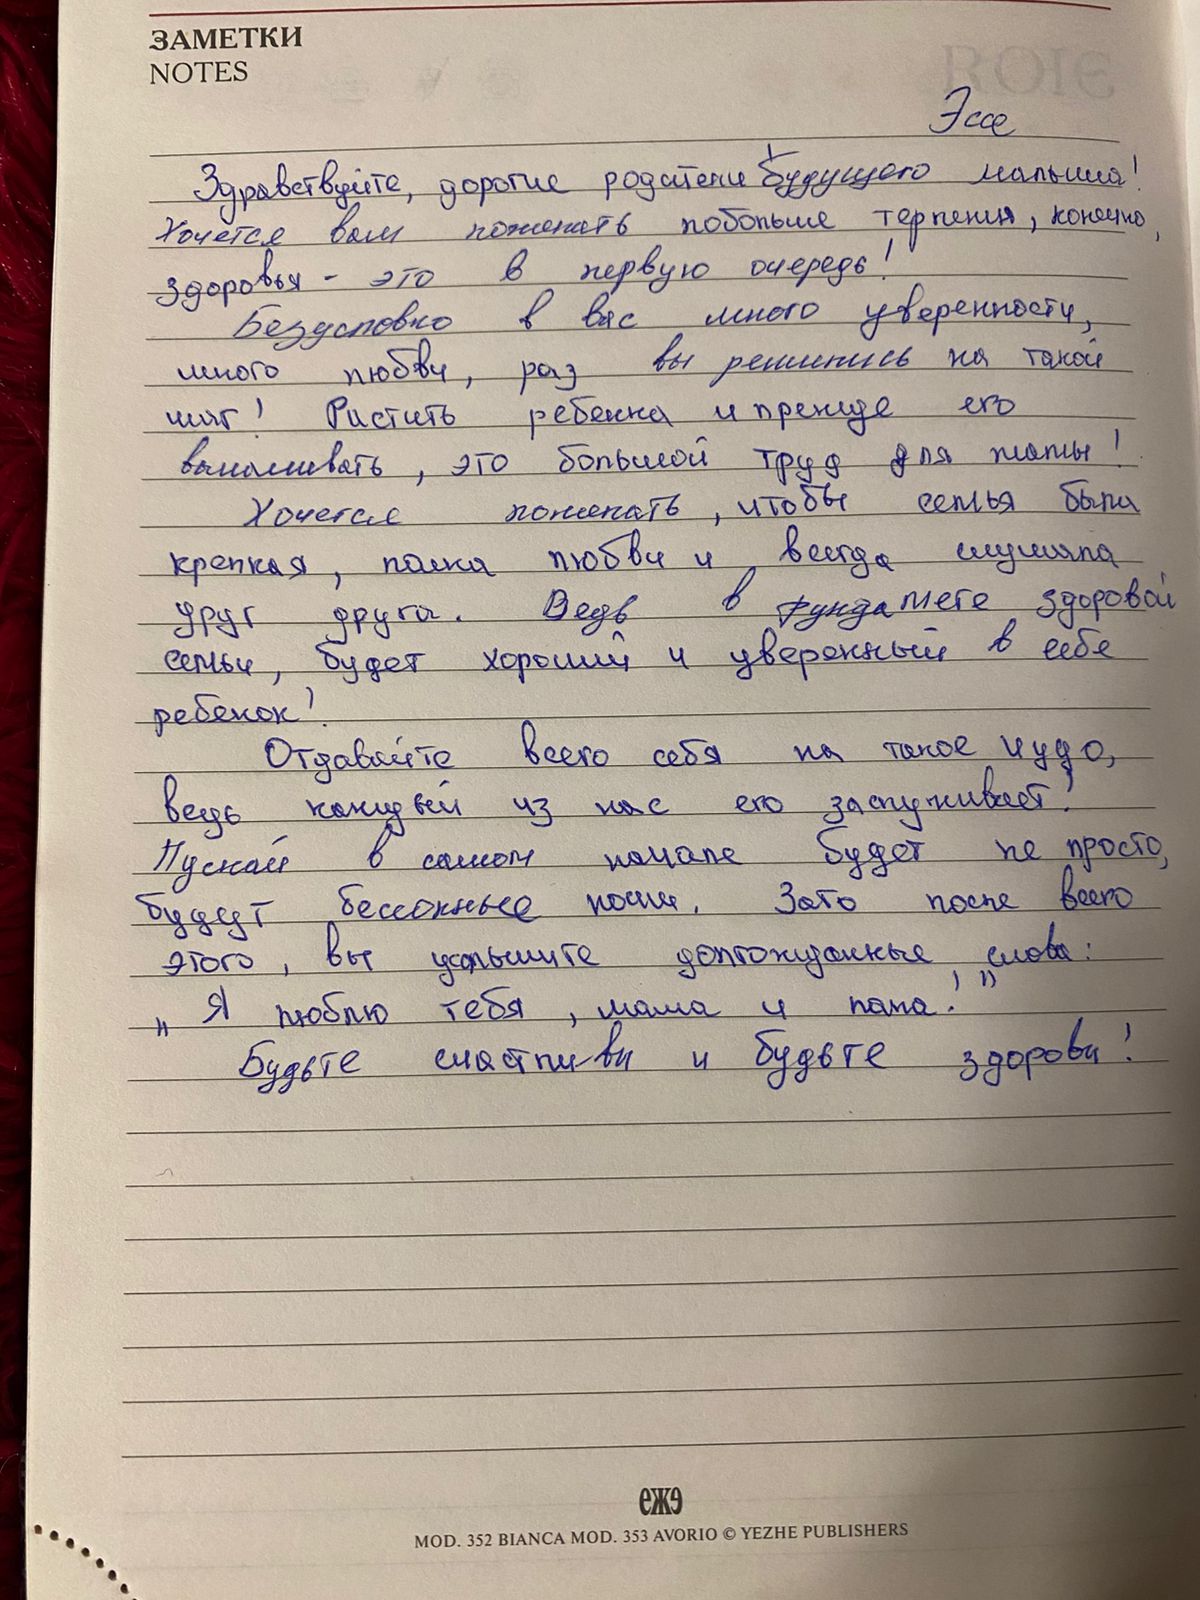 ЗАМЕТКИ
NOTES
Эссе
Здравствуйте, дорогие родители будущего малыша!
Хочется вам пожелать побольше терпения, конечно,
здоровья - это в первую очередь!
Безусловно в вас много уверенности,
много любви, раз вы решились на такой
шаг! Растить ребенка и прежде его
вынашивать, это большой труд для мамы!
Хочется пожелать, чтобы семья была
крепкая, полна любви и всегда слушала
друг друга. Ведь в фундамете здоровой
семьи, будет хороший и уверенный в себе
ребенок!
Отдавайте всего себя на такое чудо,
ведь каждый из нас его заслуживает!
Пускай в самом начале будет не просто,
будут бессонные ночи. Зато после всего
этого, вы услышите долгожданные слова:
„Я люблю тебя, мама и папа!"
Будьте счастливы и будьте здоровы!
ежэ
MOD. 352 BIANCA MOD. 353 AVORIO © YEZHE PUBLISHERS